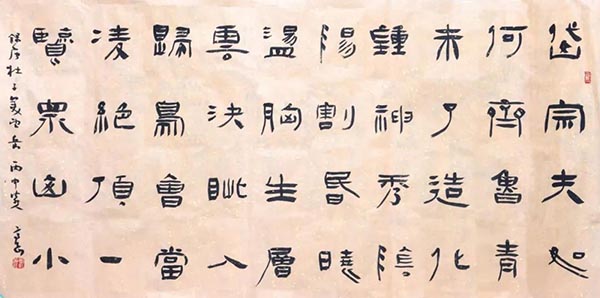 岱宗夫如
何齊魯青
未了造化
鍾神秀陰
陽割昏曉
盪胸生層
雲決眦入
歸鳥會當
凌絕頂一
覽眾山小
録唐杜子美望岳 丙申夏